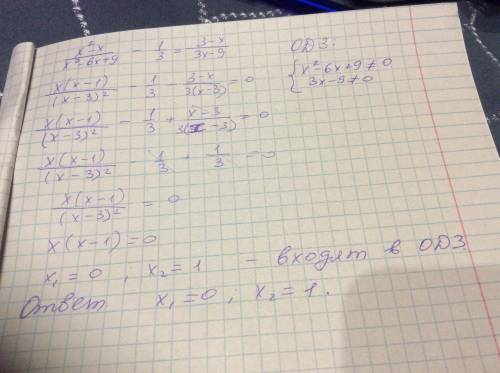 (x²-x)/(x²-6x+9) - 1/3 = (3-x)/(3x-9)
ОДЗ:
{ x²-6x+9≠0
3x-9≠0
x(x-1)/(x-3)² - 1/3 - (3-x)/(3(x-3)) = 0
x(x-1)/(x-3)² - 1/3 + (x-3)/(3(x-3)) = 0
x(x-1)/(x-3)² - 1/3 + 1/3 = 0
x(x-1)/(x-3)² = 0
x(x-1)=0
x₁=0, x₂=1 - входят в ОДЗ
Ответ x₁=0; x₂=1.